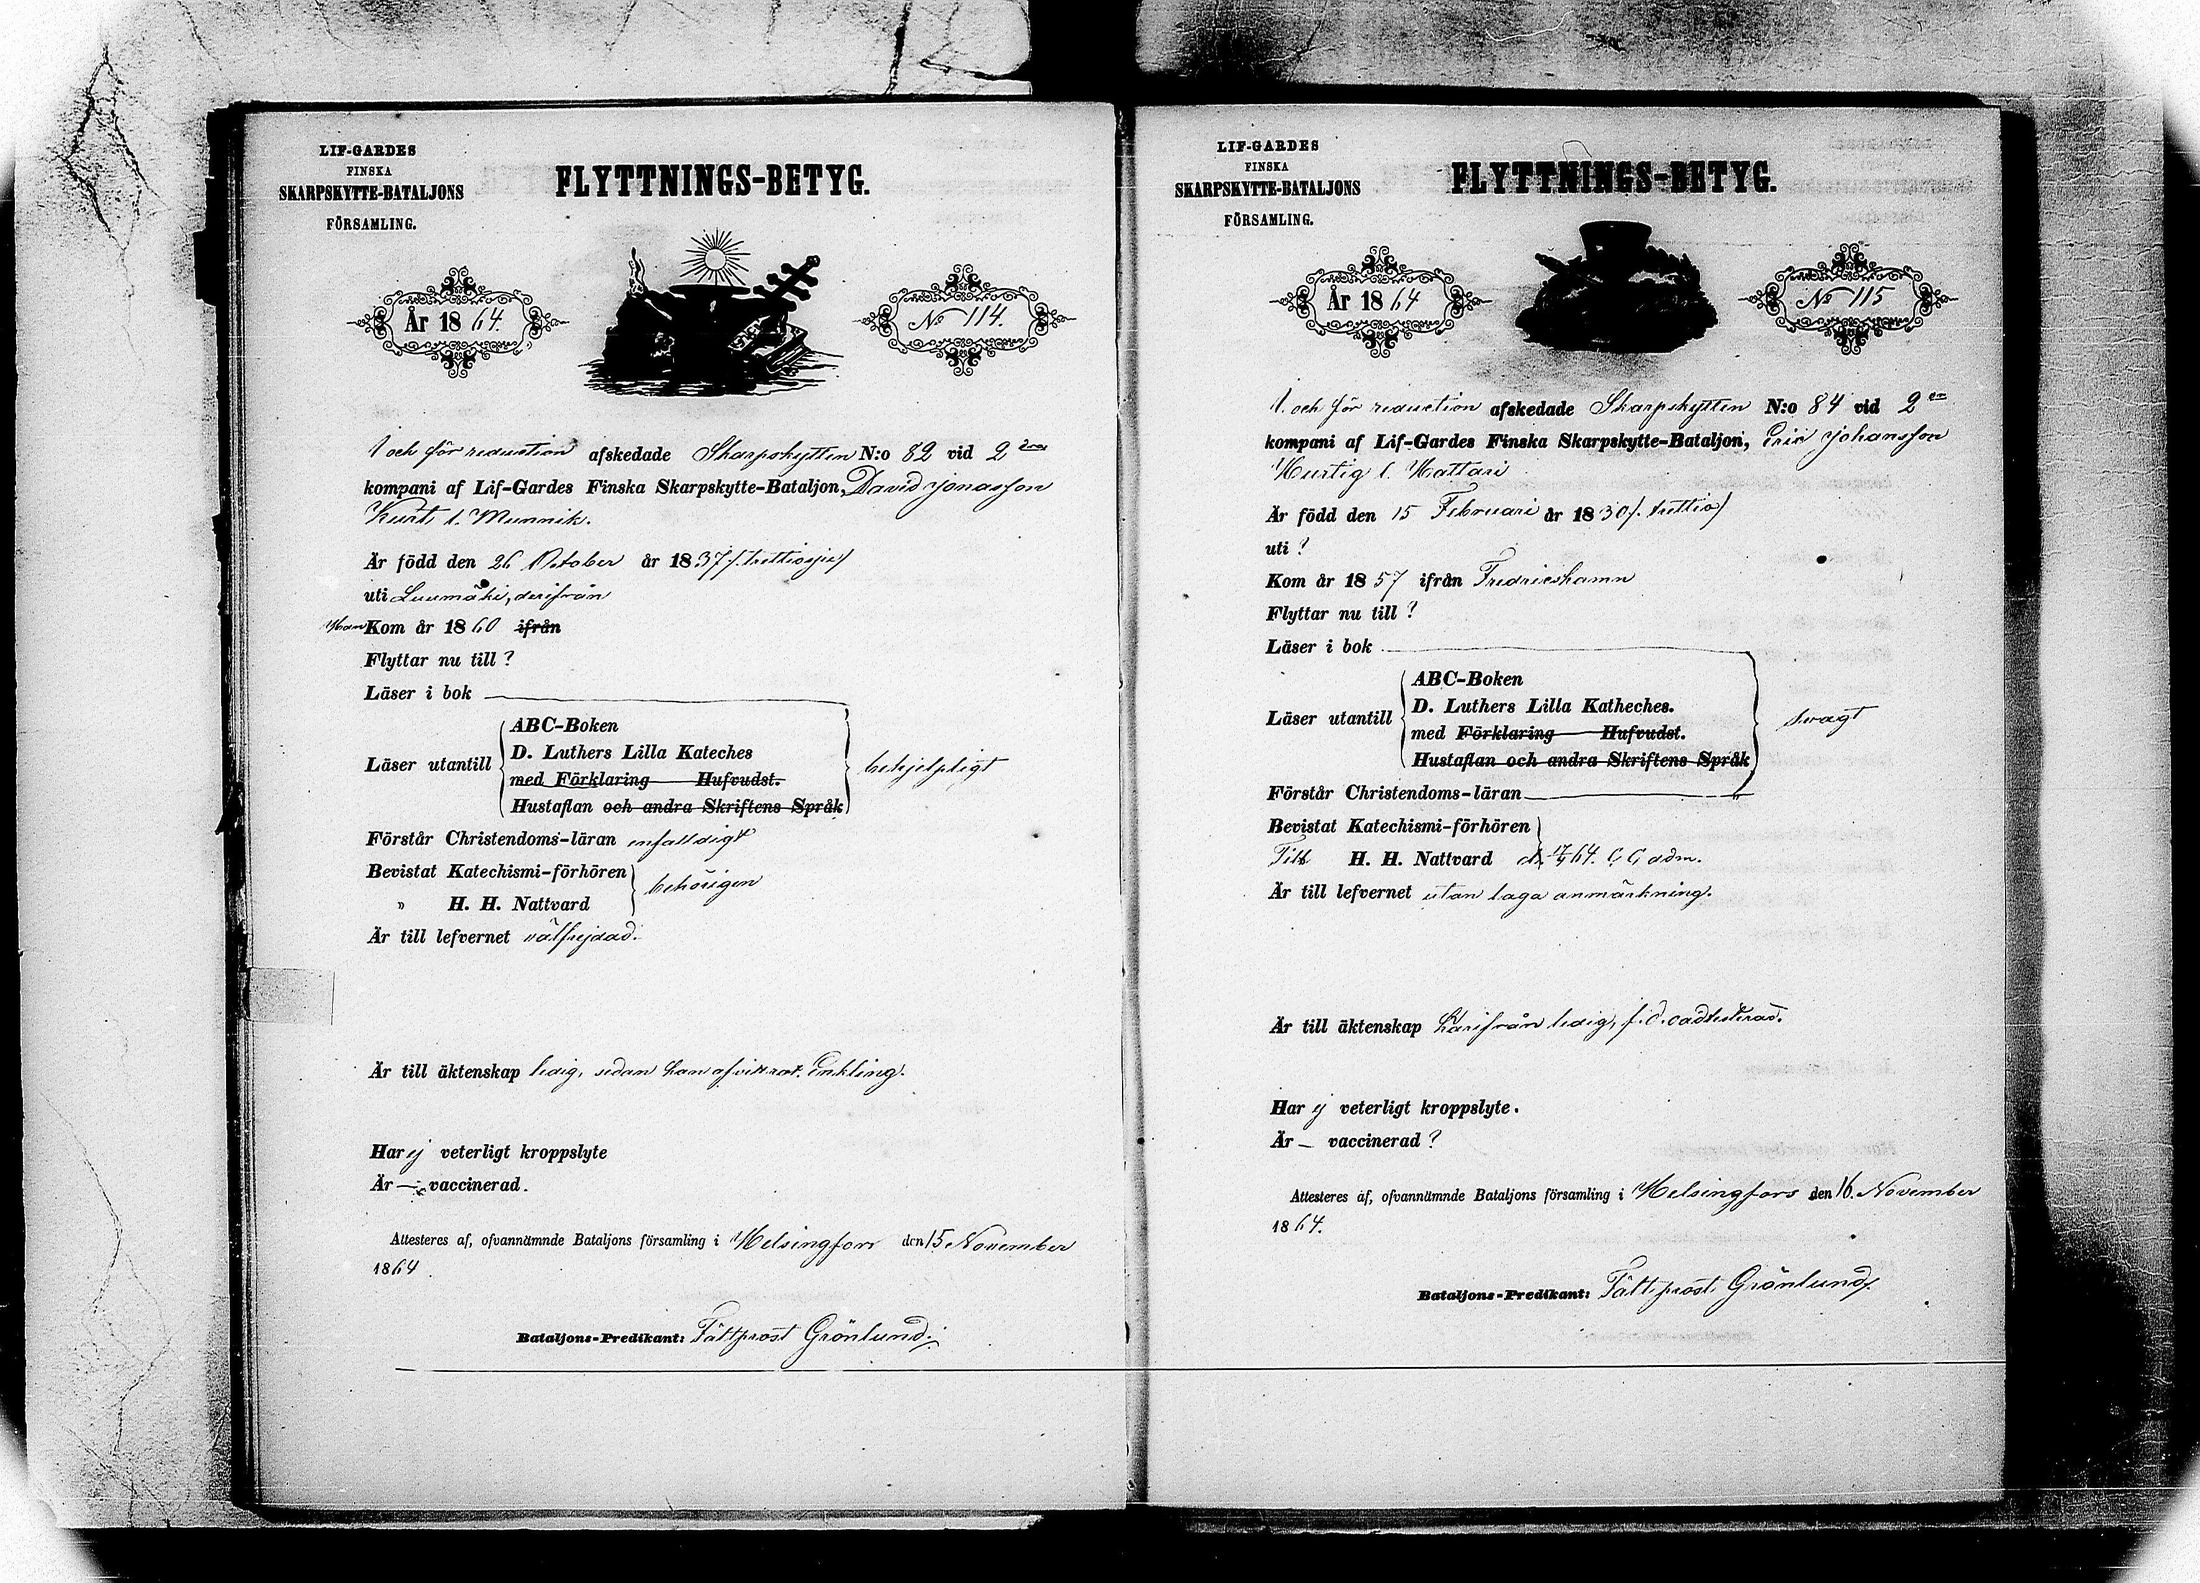 LIF-GARDES
FINSKA
SKARPSKYTTE-BATALJONS
FÖRSAMLING.
FLYTTNINGS-BETYG.
År 1864.
No 114.
I och för reduction afskedade Skarpskytten N:o 82 vid 2dra
kompani af Lif-Gardes Finska Skarpskytte-Bataljon, David Jonasson
Kurt l. Munnik.
Är född den 26 October år 1837 /. trettiosju /
uti Luumäki, derifrån
Han Kom år 1860 ifrån
Flyttar nu till ?
Läser i bok
Läser utantill
ABC-Boken
D. Luthers Lilla Kateches
med Förklaring Hufvudst.
Hustaflan och andra Skriftens Språk
behjelpligt
Förstår Christendoms-läran enfaldigt
Bevistat Katechismi-förhören
" H. H. Nattvard
behörigen
Är till lefvernet välfrejdad.
Är till äktenskap ledig, sedan han afvittrat. Enkling.
Har ej veterligt kroppslyte
Är — vaccinerad.
Attesteras af, ofvannämnde Bataljons församling i Helsingfors den 15 November
1864
Bataljons-Predikant: Fältprost Grönlund.
LIF-GARDES
FINSKA
SKARPSKYTTE-BATALJONS
FÖRSAMLING.
FLYTTNINGS-BETYG.
År 1864
No 115
I. och för reduction afskedade Skarpskytten N:o 84 vid 2
kompani af Lif-Gardes Finska Skarpskytte-Bataljon, Eric Johansson
Hurtig l. Mattari
Är född den 15 Februari år 1830 /. trettio /
uti ?
Kom år 1857 ifrån Fredricshamn
Flyttar nu till ?
Läser i bok
Läser utantill
ABC-Boken
D. Luthers Lilla Katheches.
med Förklaring Hufvudst.
Hustaflan och andra Skriftens Språk
svagt
Förstår Christendoms-läran "
Bevistat Katechismi-förhören
Till H. H. Nattvard d. 64. adm.
Är till lefvernet utan laga anmärkning.
Är till äktenskap härifrån ledig,
Har ej veterligt kroppslyte.
Är — vaccinerad ?
Attesteres af, ofvannämnde Bataljons församling i Helsingfors den 16. November
1864.
Bataljons-Predikant: Fältprost Grönlund.